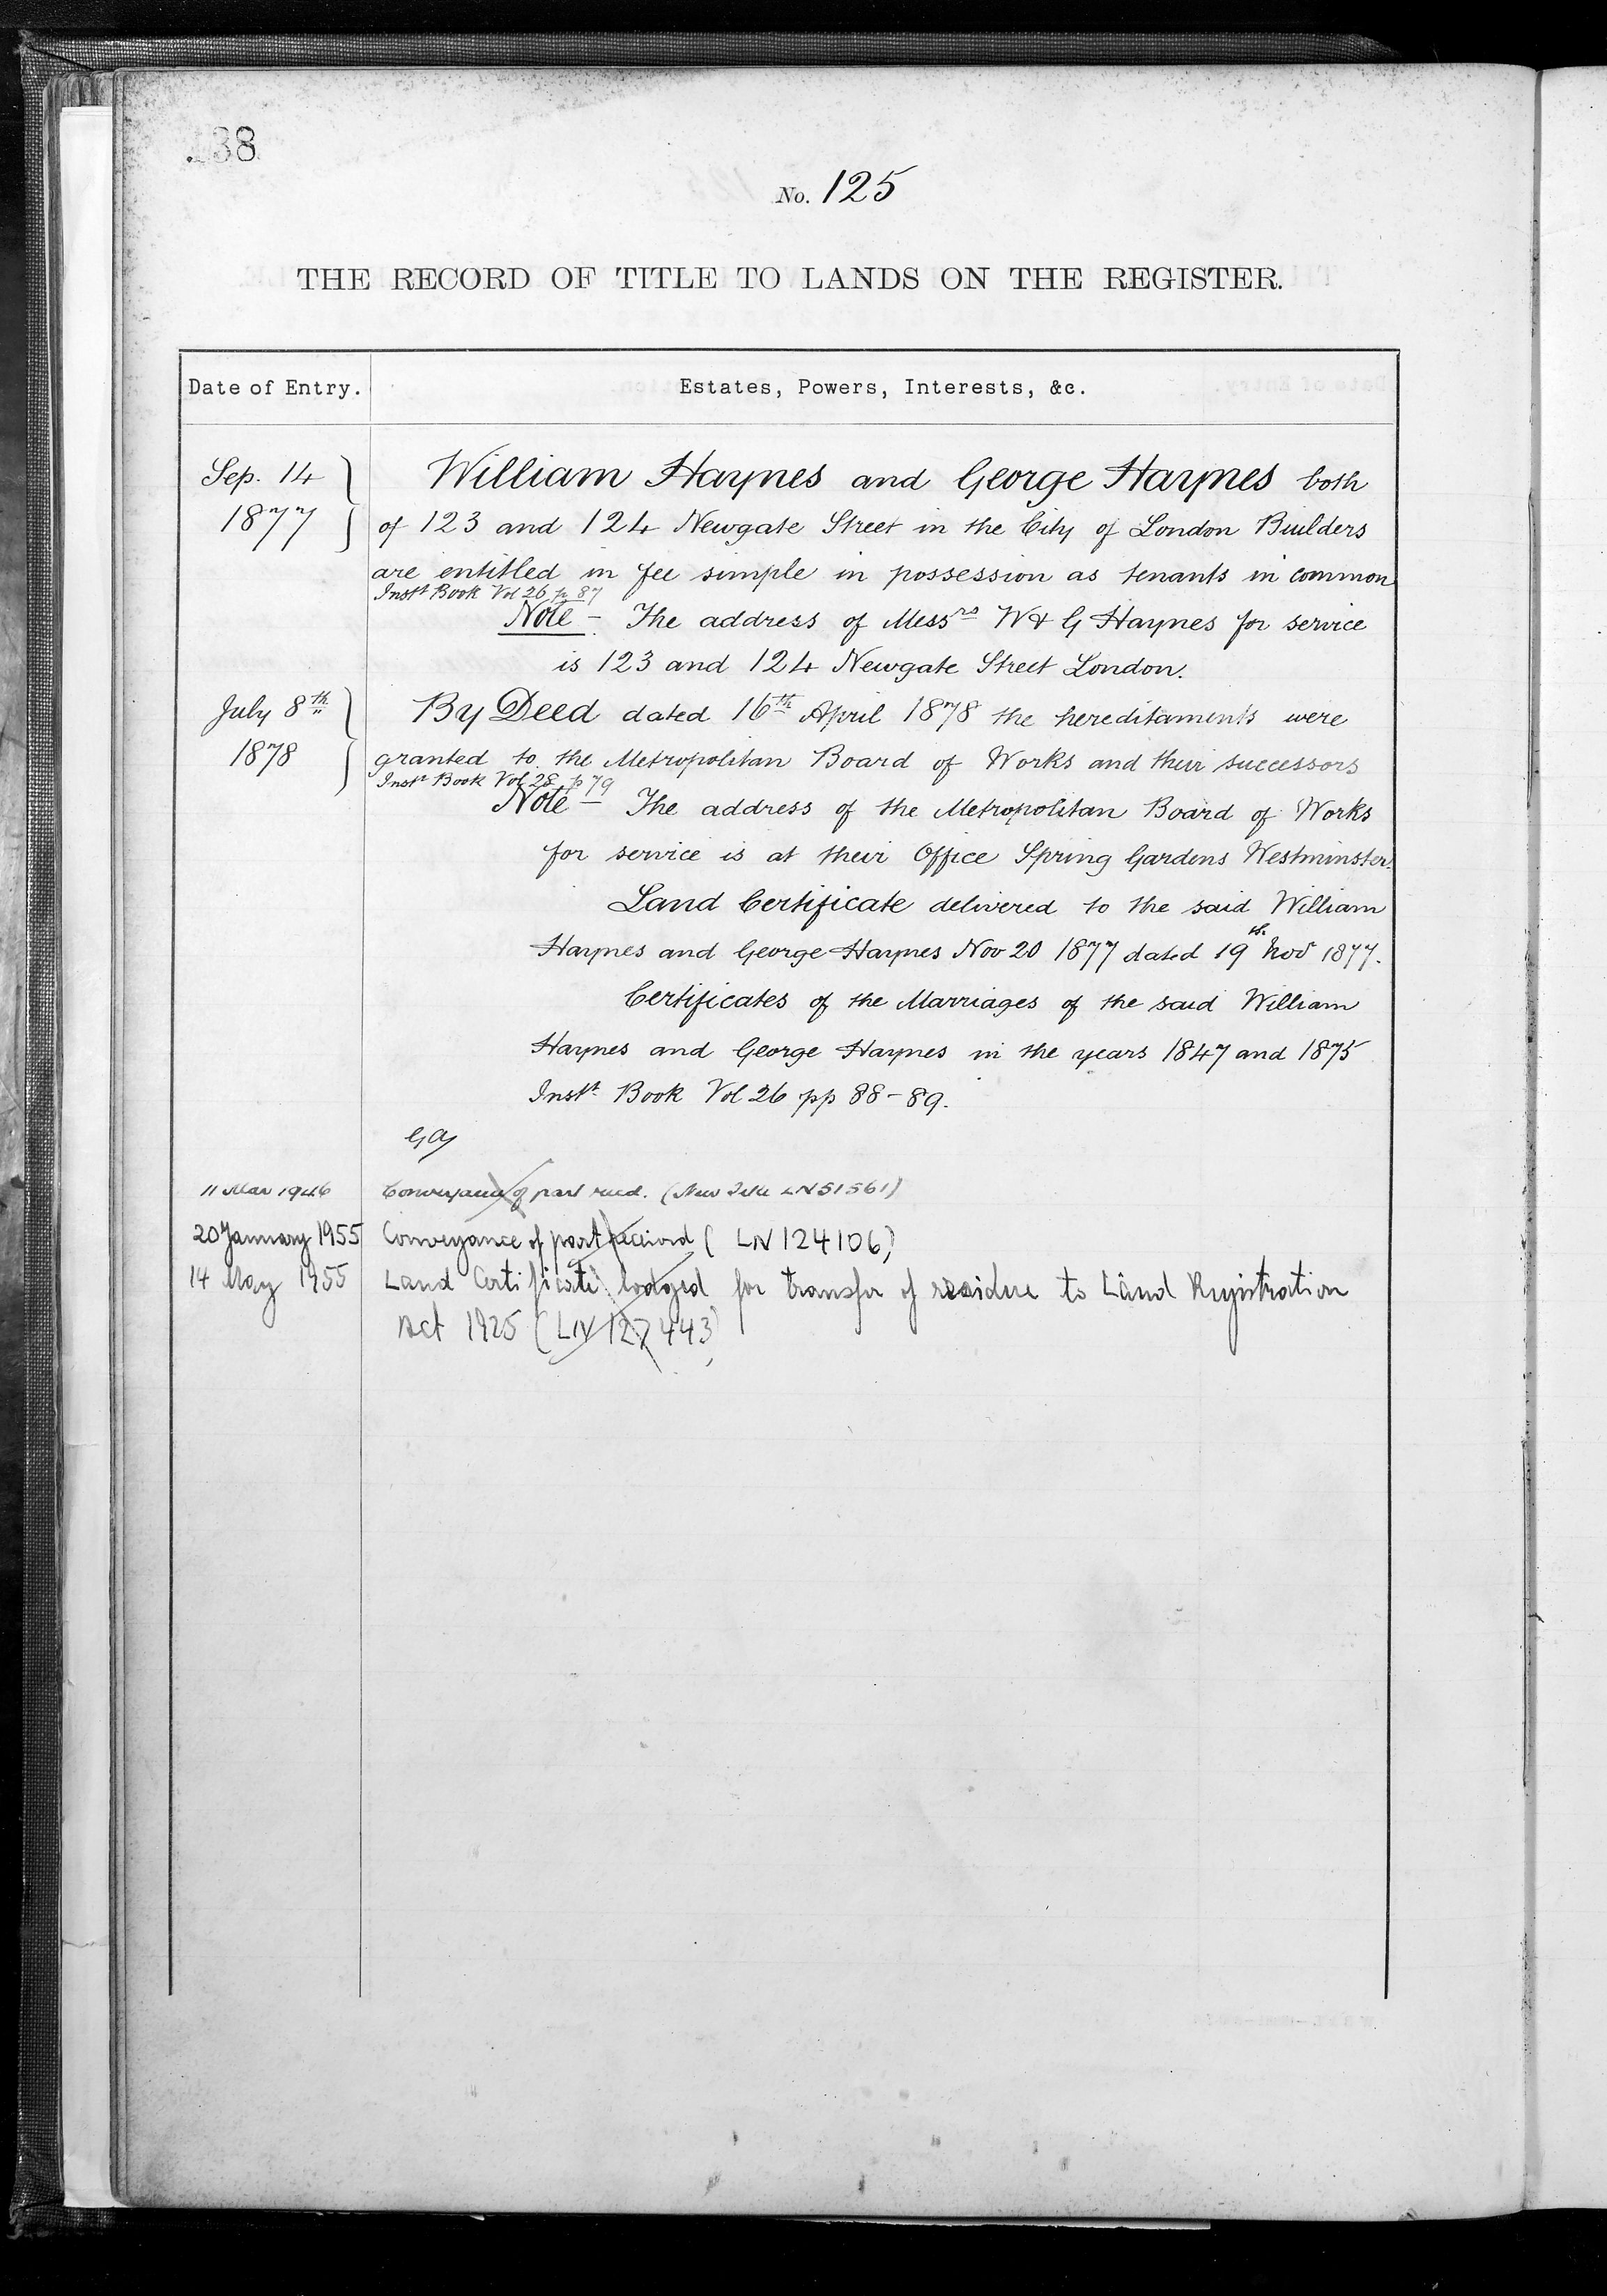 138
No. 125
THE RECORD OF TITLE TO LANDS ON THE REGISTER.
Date of Entry.
Estates, Powers, Interests, &c.
Sep. 14 William Haynes and George Haynes both
1877 of 123 and 124 Newgate Street in the City of London Builders
are entitled in fee simple in possession as tenants in common
Instt Book Vol 26 p 87
Note - The address of Messrs W & G Haynes for service
is 123 and 124 Newgate Street London.
July 8th By Deed dated 16th April 1878 the hereditaments were
1878 granted to the Metropolitan Board of Works and their successors
Instt Book Vol 28 p 79
Note - The address of the Metropolitan Board of Works
for service is at their Office Spring Gardens Westminster.
Land Certificate delivered to the said William
Haynes and George Haynes Nov 20 1877 dated 19th Nov 1877.
Certificates of the Marriages of the said William
Haynes and George Haynes in the years 1847 and 1875
Instt Book Vol 26 pp 88-89.
11 Mar 1946 Conveyance of part recd. (New Title LN51561)
20 January 1955 Conveyance of part received (LN124106)
14 May 1955 Land Certificate lodged for transfer of residue to Land Registration
Act 1925 (LN 127443)